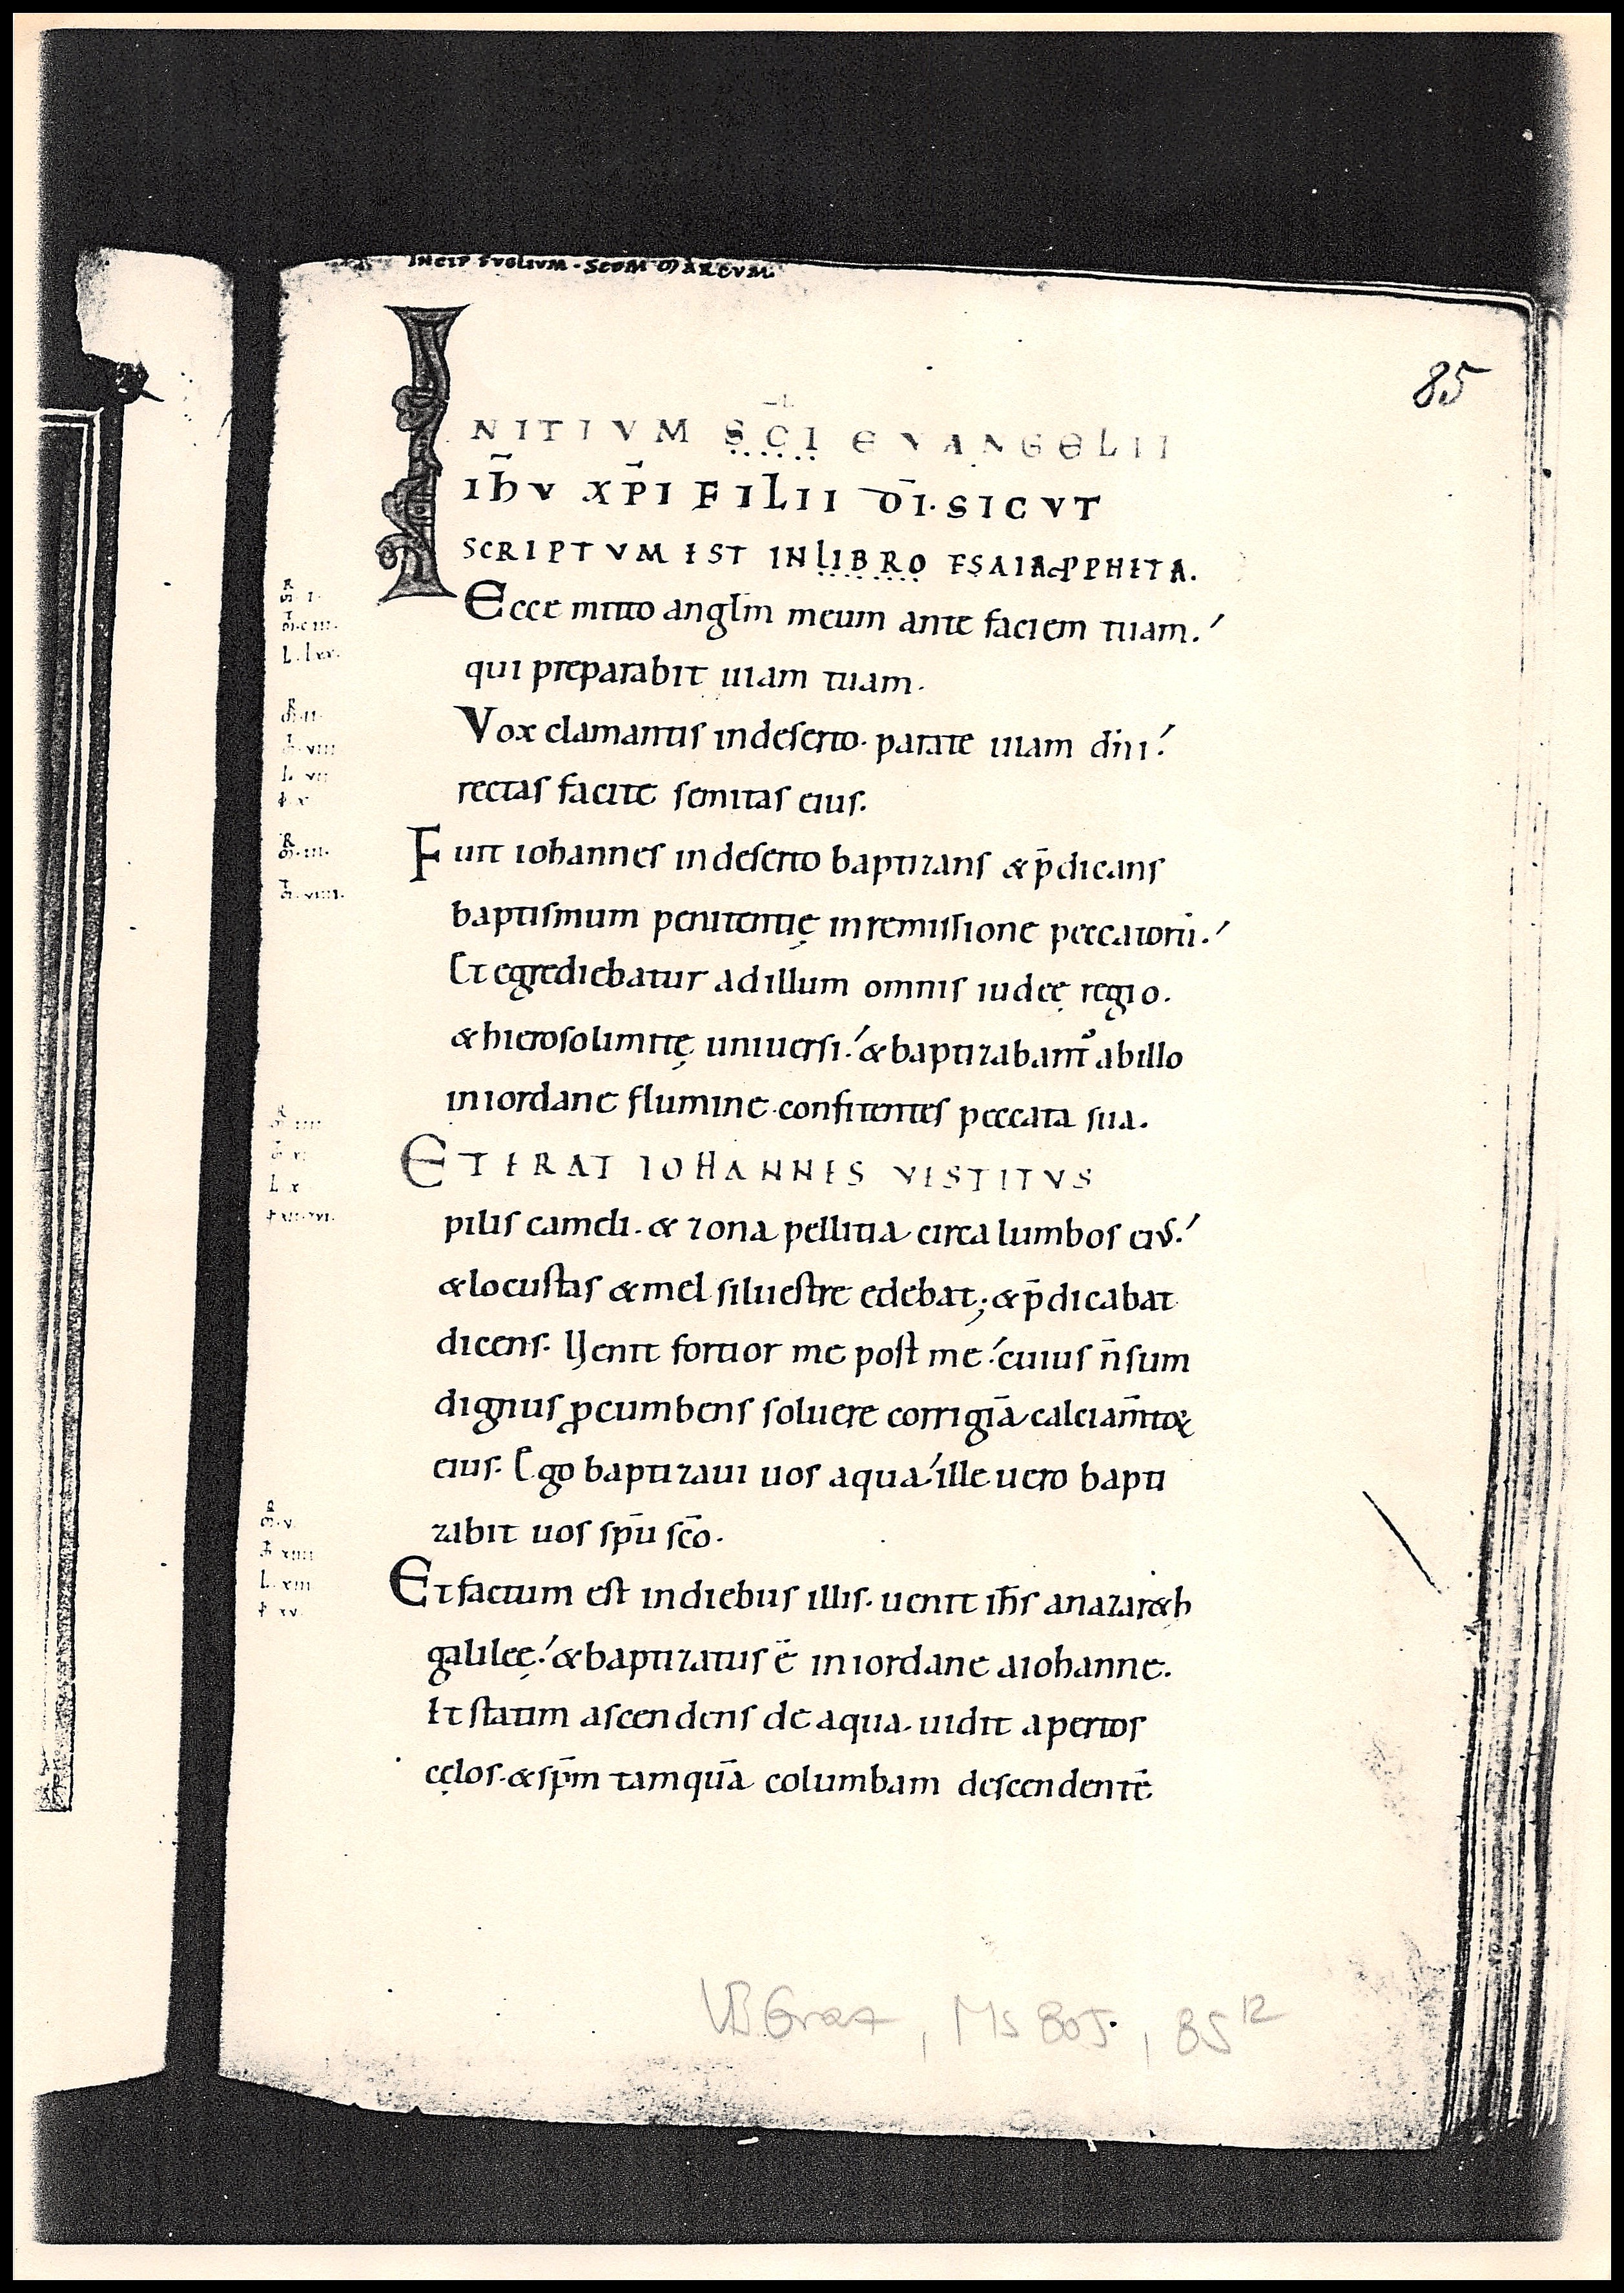 INCIP EVGLIVM · SCDM MARCVM
85
INITIVM SC̄I EVANGELII
IHV̄ XP̄I FILII DĪ. SICVT
SCRIPTVM EST IN LIBRO ESAIA PPHETA.
Ecce mitto anglm̄ meum ante faciem tuam.
qui preparabit uiam tuam.
Vox clamantis indeserto. parate uiam dn̄i.
rectas facite semitas eius.
Fuit iohannes indeserto baptizans & p̄dicans
baptismum penitentię inremissione peccatorū.
Et egrediebatur adillum omnis iudeę regio.
& hierosolimitę uniuersi. & baptizabant᷑ abillo
iniordane flumine confitentes peccata sua.
ET ERAT IOHANNES VESTITVS
pilis cameli. & zona pellitia circa lumbos eius.
& locustas & mel siluestre edebat; & p̄dicabat
dicens. Uenit fortior me post me. cuius n̄ sum
dignus ꝓcumbens soluere corrigiā calciam̄toꝝ
eius. Ego baptizaui uos aqua. ille uero bapti
zabit uos sp̄u sc̄o.
Et factum est indiebus illis. uenit ih̄s anazareth
galileę. & baptizatus ē iniordane aiohanne.
Et statim ascendens de aqua. uidit apertos
cęlos. & sp̄m tamquā columbam descendentē
R
M. I.
I
M. c III.
L. lxx.
R
M. II.
I
M. VIII
L. VII
I. X
R
M. III.
I
M. VIIII.
R
M. IIII
M. XI
L. X
I. XII. XVI.
R
M. V.
M. XIIII
L. XIII
I. XV.
UB Graz, Ms 805, 85 12